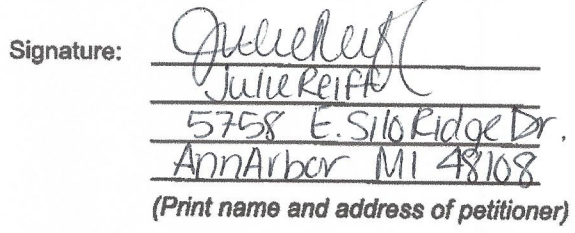 Signature: Julie Reiff
Julie Reiff
5758 E. Silo Ridge Dr.
Ann Arbor MI 48108
(Print name and address of petitioner)